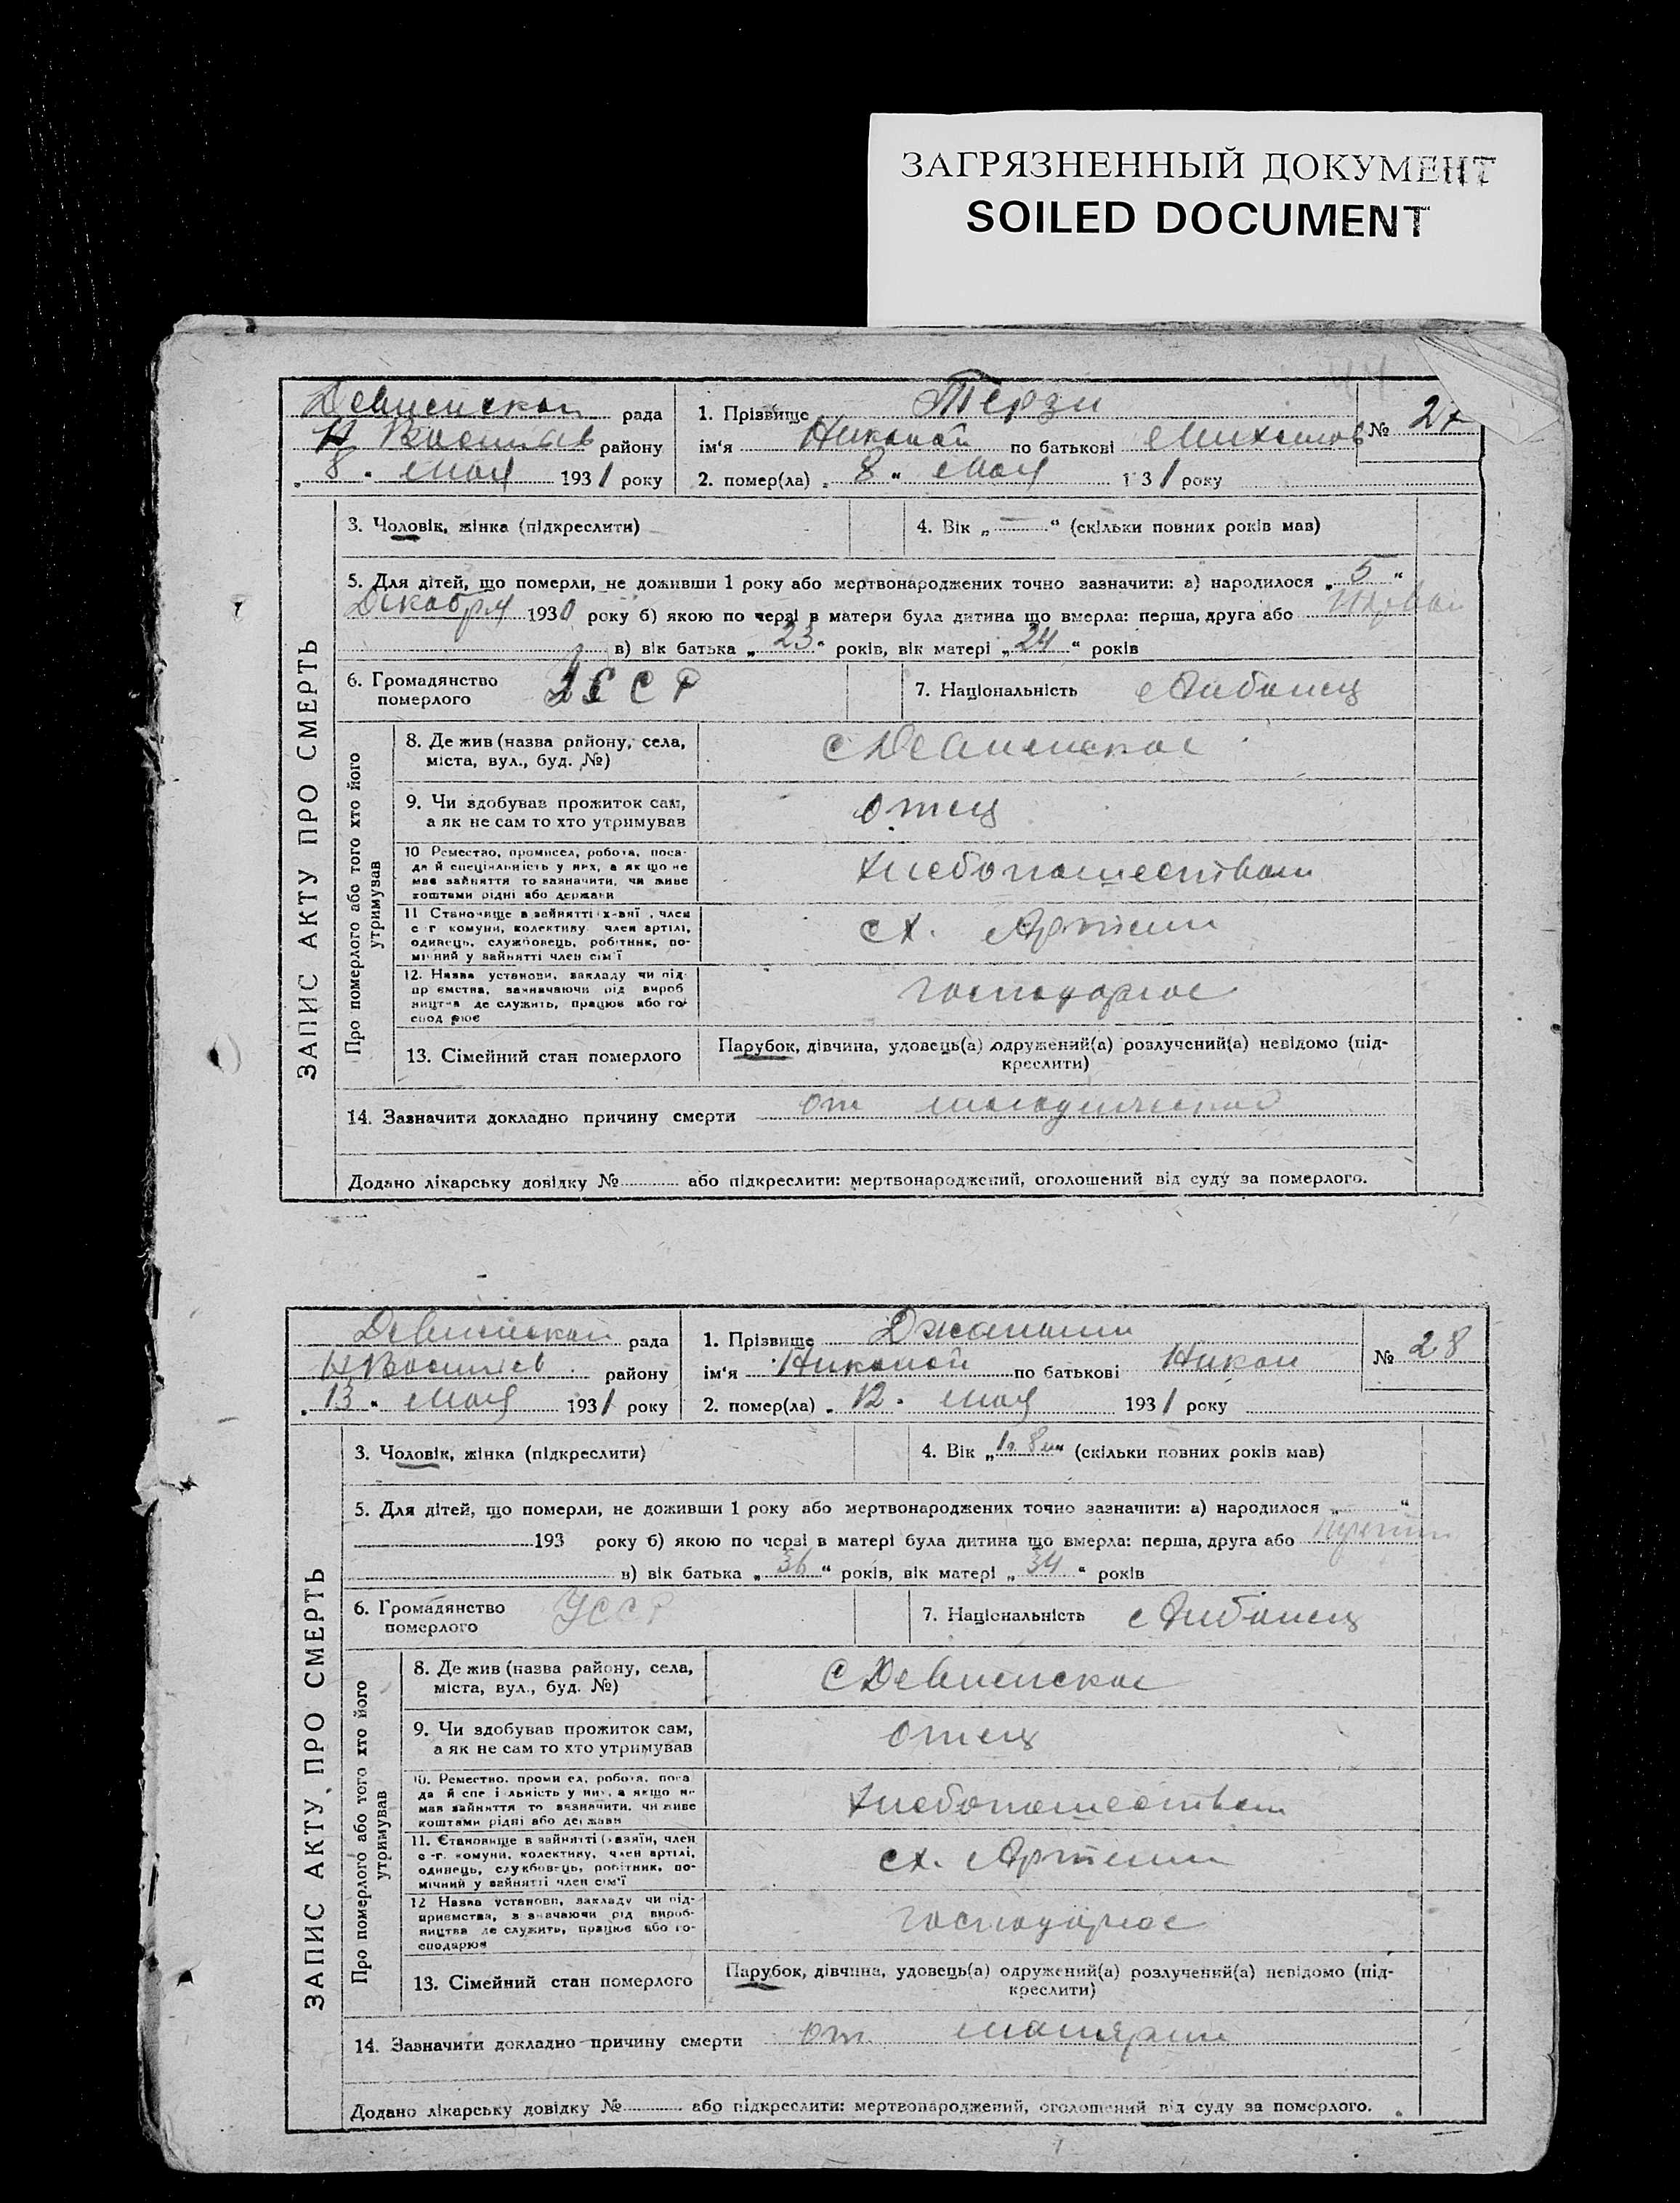 ЗАГРЯЗНЕННЫЙ ДОКУМЕНТ
SOILED DOCUMENT
Девненской рада
Н Васильев району
„ 8 „ мая 1931 року
1. Прізвище Терзи
ім'я Николай по батькові Михайлов
2. помер(ла) „ 8 „ мая 1 31 року
№ 27
ЗАПИС АКТУ ПРО СМЕРТЬ
3. Чоловік, жінка (підкреслити)
4. Вік „ — " (скільки повних років мав)
5. Для дітей, що померли, не доживши 1 року або мертвонароджених точно зазначити: а) народилося „ 5 "
Декабря 1930 року б) якою по черзі в матери була дитина що вмерла: перша, друга або
в) вік батька „ 23 " років, вік матері „ 24 " років
6. Громадянство померлого УССР
7. Національність Албанец
Про померлого або того хто його утримував
8. Де жив (назва району, села,
міста, вул., буд. №)
с Девненское
9. Чи здобував прожиток сам,
а як не сам то хто утримував
отец
10 Ремество, промисел, робота, поса-
да й спеціяльність у них, а як що не
має зайняття то зазначити, чи живе
коштами рідні або держави
хлебопашеством
11 Становище в зайнятті х-зяї , член
с г комуни, колективу член артілі,
одинець, службовець, робітник, по-
мічний у зайнятті член сім'ї
сх. Артели
12. Назва установи, закладу чи під
пр ємства, зазначаючи рід вироб
ництва де служить, працює або го
спод рює
господарює
13. Сімейний стан померлого
Парубок, дівчина, удовець(а) одружений(а) розлучений(а) невідомо (під-
креслити)
14. Зазначити докладно причину смерти от
Додано лікарську довідку № або підкреслити: мертвонароджений, оголошений від суду за померлого.
Девненской рада
Н Васильев району
„ 13 „ мая 1931 року
1. Прізвище
ім'я Николай по батькові Никол
2. помер(ла) „ 12 „ мая 1931 року
№ 28
ЗАПИС АКТУ ПРО СМЕРТЬ
3. Чоловік, жінка (підкреслити)
4. Вік „ 1г. 8м " (скільки повних років мав)
5. Для дітей, що померли, не доживши 1 року або мертвонароджених точно зазначити: а) народилося „ "
193 року б) якою по черзі в матері була дитина що вмерла: перша, друга або
в) вік батька „ 36 " років, вік матері „ 34 " років
6. Громадянство померлого УССР
7. Національність Албанец
Про померлого або того хто його утримував
8. Де жив (назва району, села,
міста, вул., буд. №)
С Девненское
9. Чи здобував прожиток сам,
а як не сам то хто утримував
отец
10. Ремество, проми ел, робота, поса
да й спе і льність у них, а якщо н
має зайняття то зазначити, чи живе
коштами рідні або держави
хлебопашеством
11. Становище в зайнятті ( азяїн, член
с -г. комуни, колективу, член артілі,
одинець, службовець, робітник, по-
мічний у зайнятті член сім'ї
сх. Артели
12 Назва установи, закладу чи під-
приємства, з значаючи рід вироб-
ництва де служить, працює або го-
сподарює
господарює
13. Сімейний стан померлого
Парубок, дівчина, удовець(а) одружений(а) розлучений(а) невідомо (під-
креслити)
14. Зазначити докладно причину смерти от малярии
Додано лікарську довідку № або підкреслити: мертвонароджений, оголошений від суду за померлого.